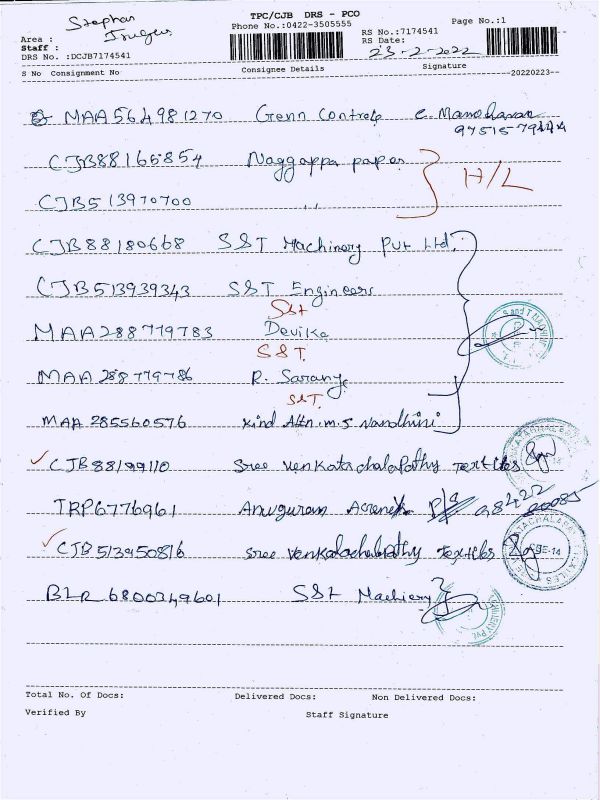 TPC/CJB DRS - PCO
Stephan
Phone No.:0422-3505555
Page No.:1
Area :
RS No.:7174541
Staff :
RS Date:
23-2-2022
DRS No. :DCJB7174541
S No Consignment No Consignee Details Signature
--20220223--
MAA564981270 Genn Controls C. Manoharan
CJB88165854 Naggappa paper
H/L
CJB513970700 ,,
CJB88180668 S&T Machinery Pvt Ltd.
CJB513939343 S&T Engineers
S&T
MAA288779783 Devika
S&T
MAA 288779786 R. Saranya
S&T.
MAA 285560576 Kind Attn. M.S Nandhini
CJB88199110 Sree Venkatachalapathy Textiles
TRP6776961 Anuguram
CJB513950816 Sree Venkatachalapathy Textiles
BLR 6800349601 S&T Machiery
Total No. Of Docs: Delivered Docs: Non Delivered Docs:
Verified By Staff Signature